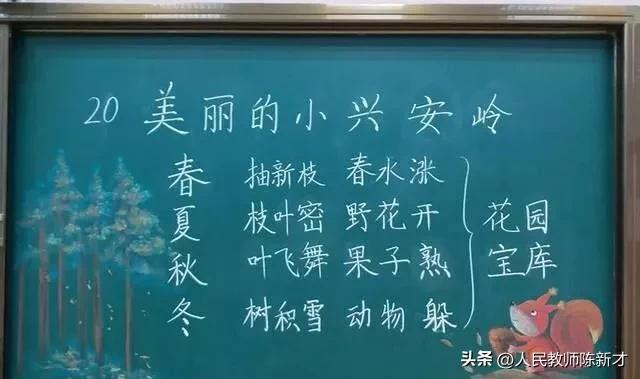 20 美丽的小兴安岭
春 抽新枝 春水涨
夏 枝叶密 野花开
秋 叶飞舞 果子熟
冬 树积雪 动物躲
花园
宝库
头条 @人民教师陈新才